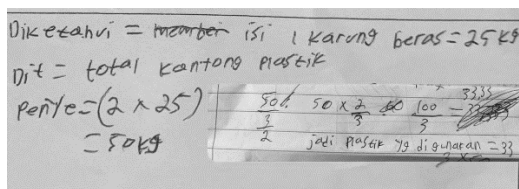 Diketahui = isi 1 karung beras = 25 kg
Dit = total kantong plastik
Penye = (2 x 25)
= 50 kg
50 : 3/2
50 x 2/3 100/3 = 33,33
jadi plastik yg digunakan = 33